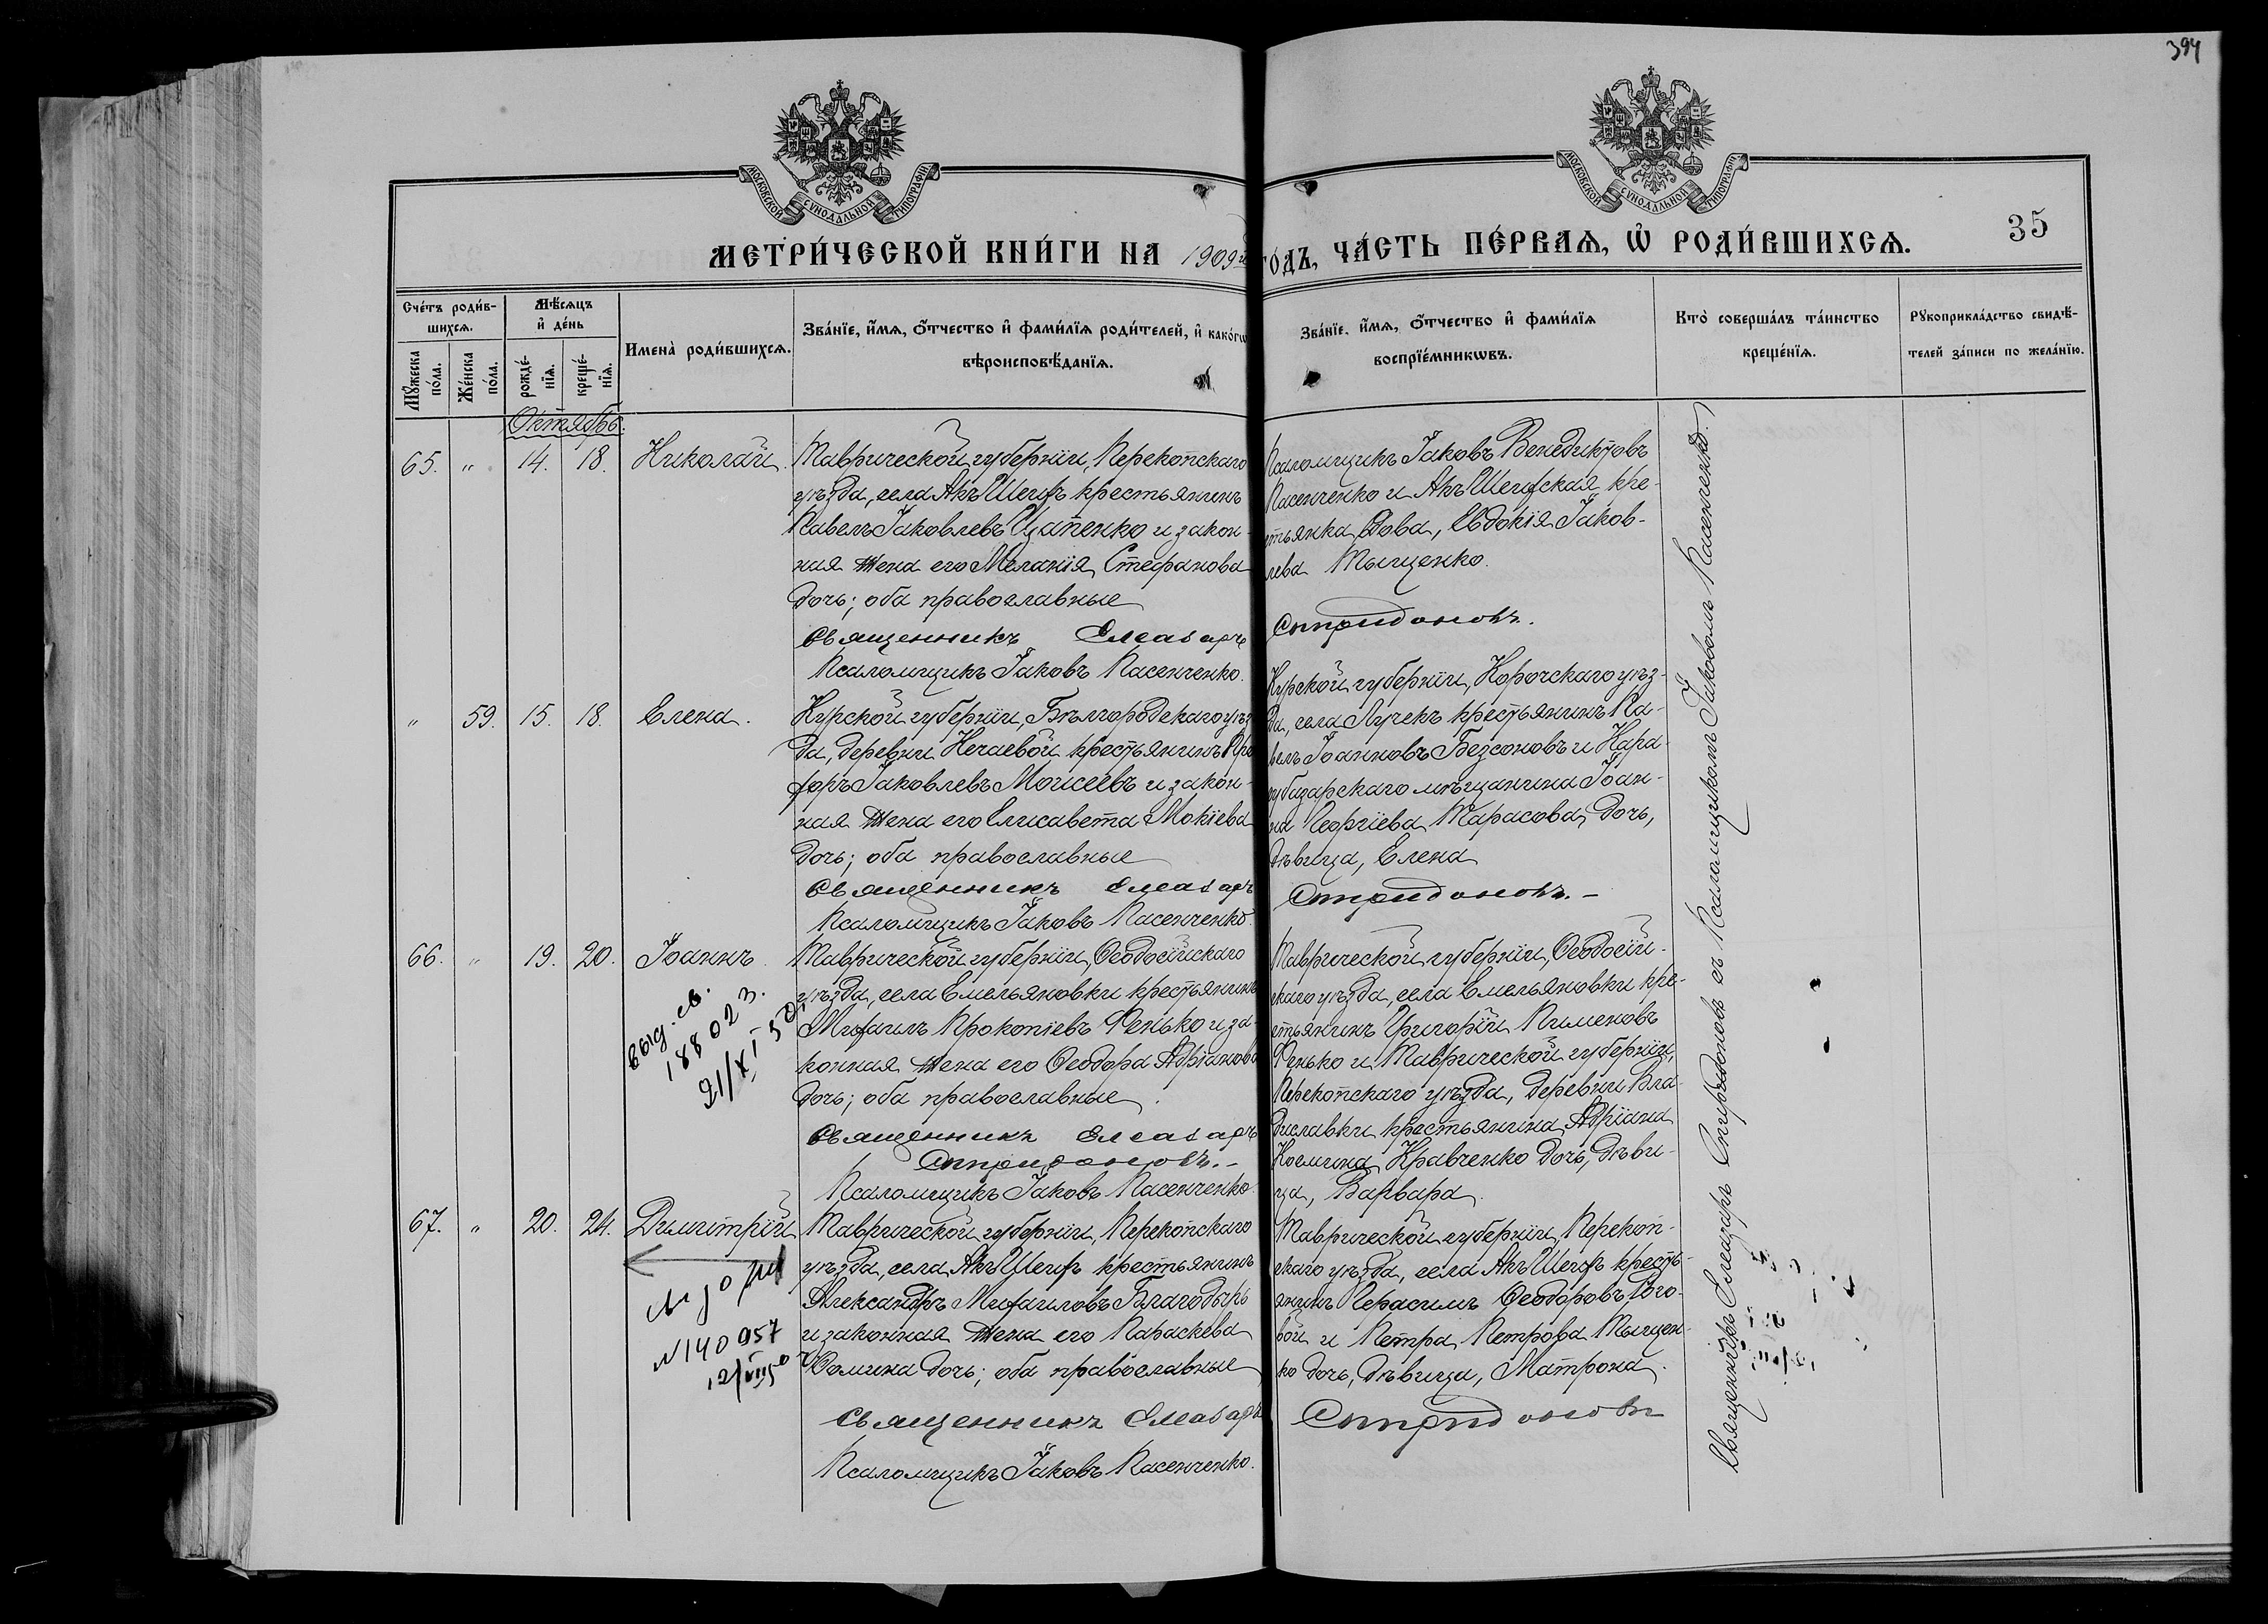 394
МОСКОВСКОЙ СѴНОДАЛЬНОЙ ТИПОГРАФІИ
МОСКОВСКОЙ СѴНОДАЛЬНОЙ ТИПОГРАФІИ
МЕТРИ́ЧЕСКОЙ КНИ́ГИ НА 1909й ГОДЪ, ЧА́СТЬ ПЕ́РВАЯ, Ѡ҆ РОДИ́ВШИХСЯ.
35
Сче́тъ роди́в-
шихся.
Мѣ́сяцъ
и҆ де́нь
Мꙋ́жеска
по́ла.
Же́нска
по́ла.
рожде́-
нїя.
креще́-
нїя.
Имена̀ роди́вшихся.
Зва́нїе, и҆́мя, о҆́тчество и҆ фами́лїя роди́телей, и҆ како́гѡ
вѣроисповѣ́данїя.
Зва́нїе, и҆́мя, о҆́тчество и҆ фами́лїя
воспрїе́мникѡвъ.
Кто̀ соверша́лъ та́инство
креще́нїя.
Рꙋкоприкла́дство свидѣ́-
телей за́писи по жела́нїю.
Октябрь.
65. „ 14. 18. Николай.
Таврической губерніи, Перекопскаго
уѣзда, села Акъ Шеихъ крестьянинъ
Павелъ Іаковлевъ Цапенко и закон-
ная жена его Меланія Стефанова
дочь; оба православные
Священникъ Елеазаръ Спиридоновъ.
Псаломщикъ Іаковъ Пасенченко.
Псаломщикъ Іаковъ Венедиктовъ
Пасенченко и Акъ Шеихская кре-
стьянка вдова, Евдокія Іаков-
лева Тыщенко.
„ 59. 15. 18. Елена.
Курской губерніи, Бѣлгородскаго уѣз-
да, деревни Нечаевой крестьянинъ
Іаковлевъ Моисеевъ и закон-
ная жена его Елисавета Мокіева
дочь; оба православные
Священникъ Елеазаръ Спиридоновъ.
Псаломщикъ Іаковъ Пасенченко.
Курской губерніи, Корочскаго уѣз-
да, села Лучекъ крестьянинъ Па-
велъ Іоанновъ Безсоновъ и Кара-
субазарскаго мѣщанина Іоан-
на Георгіева Тарасова дочь,
дѣвица, Елена
66. „ 19. 20. Іоаннъ.
выд. св.
188023.
21/XI
Таврической губерніи, Ѳеодосійскаго
уѣзда, села Емельяновки крестьянинъ
Михаилъ Прокопіевъ Фенько и за-
конная жена его Ѳеодора Адріанова
дочь; оба православные.
Священникъ Елеазаръ
Спиридоновъ.
Псаломщикъ Іаковъ Пасенченко.
Таврической губерніи, Ѳеодосій-
скаго уѣзда, села Емельяновки кре-
стьянинъ Григорій Пименовъ
Фенько и Таврической губерніи,
Перекопскаго уѣзда, деревни Вла-
диславки крестьянина Адріана
Космина Кравченко дочь, дѣви-
ца, Варвара.
67. „ 20. 24. Димитрій
N 140957
12/VIII
Таврической губерніи, Перекопскаго
уѣзда, села Акъ Шеихъ крестьянинъ
Александръ Михаиловъ Благодырь
и законная жена его Параскева
Ѳомина дочь; оба православные
Священникъ Елеазаръ Спиридоновъ
Псаломщикъ Іаковъ Пасенченко.
Таврической губерніи, Перекоп-
скаго уѣзда, села Акъ Шеихъ кресть-
янинъ Герасимъ Ѳеодоровъ Бого-
вой и Петра Петрова Тыщен-
ко дочь, дѣвица, Матрона.
Священникъ Елеазаръ Спиридоновъ съ Псаломщикомъ Іаковомъ Пасенченко.